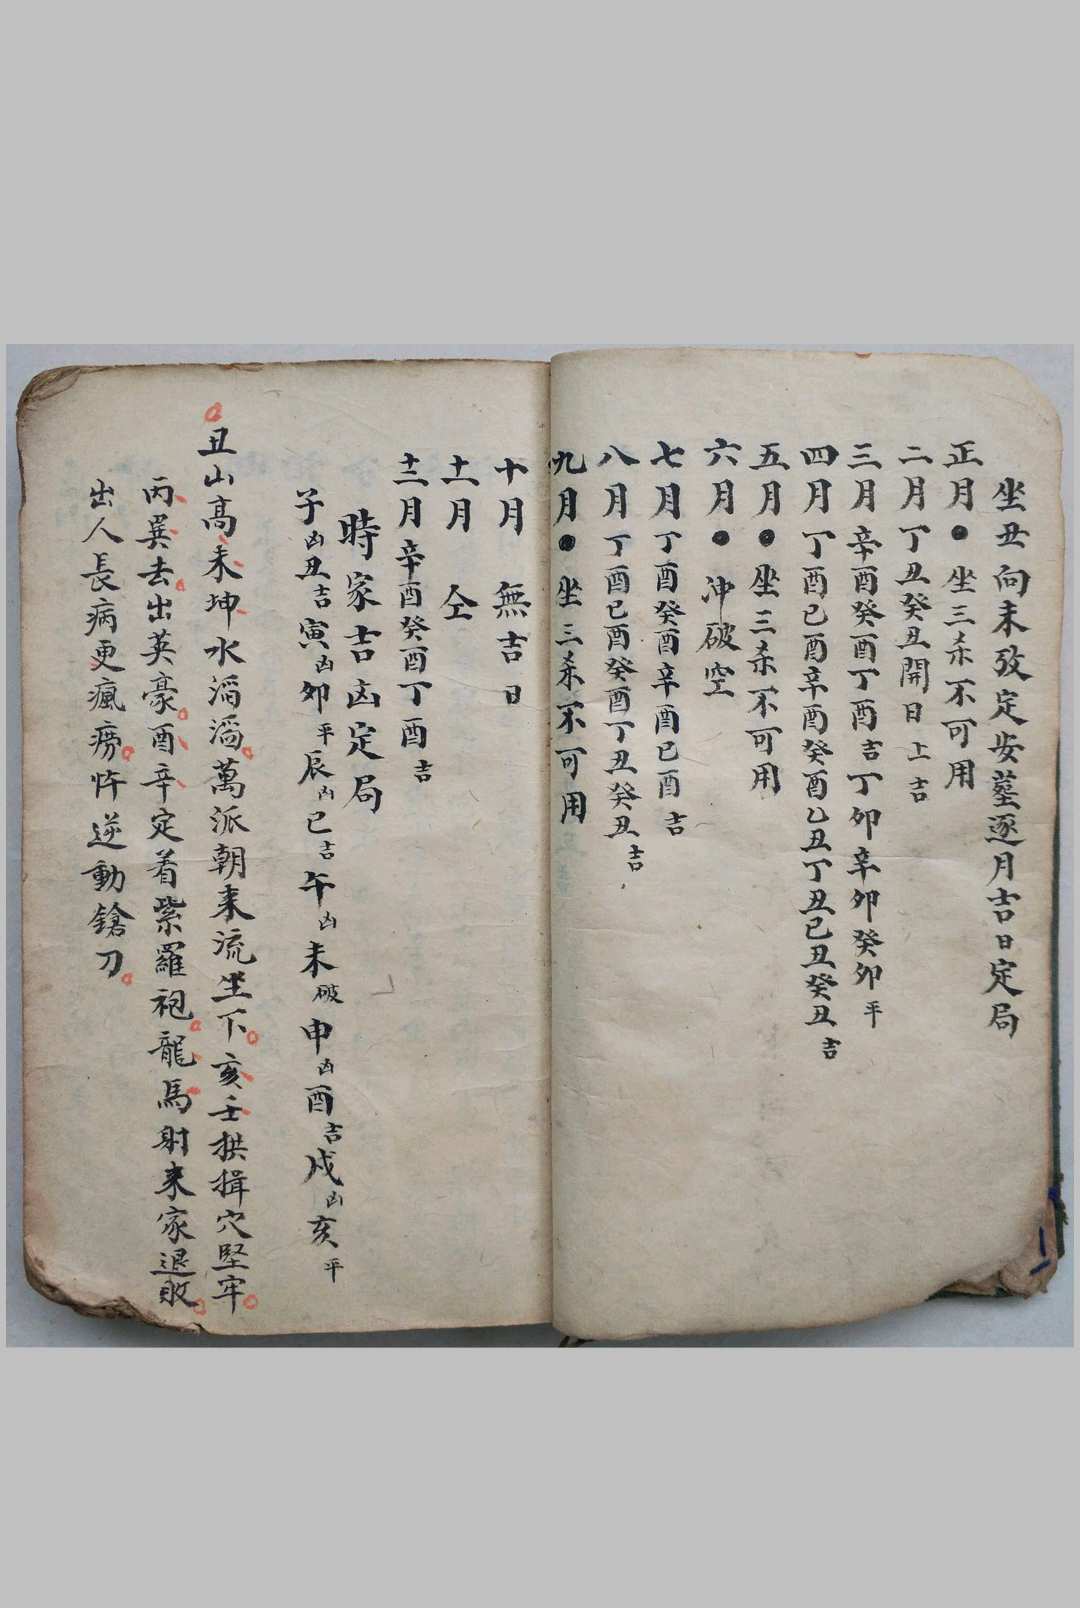 坐丑向未攷定安墓逐月吉日定局
正月●坐三杀不可用
二月丁丑癸丑開日上吉
三月辛酉癸酉丁酉吉丁卯辛卯癸卯平
四月丁酉己酉辛酉癸酉乙丑丁丑己丑癸丑吉
五月●坐三杀不可用
六月●沖破空
七月丁酉癸酉辛酉己酉吉
八月丁酉己酉癸酉丁丑癸丑吉
九月●坐三杀不可用
十月 無吉日
十一月 仝
十二月辛酉癸酉丁酉吉
時家吉凶定局
子凶丑吉寅凶卯平辰凶巳吉午凶未破申凶酉吉戌凶亥平
丑山高未坤水滔滔萬派朝来流坐下亥壬拱揖穴堅牢
丙巽去出英豪酉辛定着紫羅袍龍馬射来家退敗
出人長病更瘋癆忤逆動鎗刀